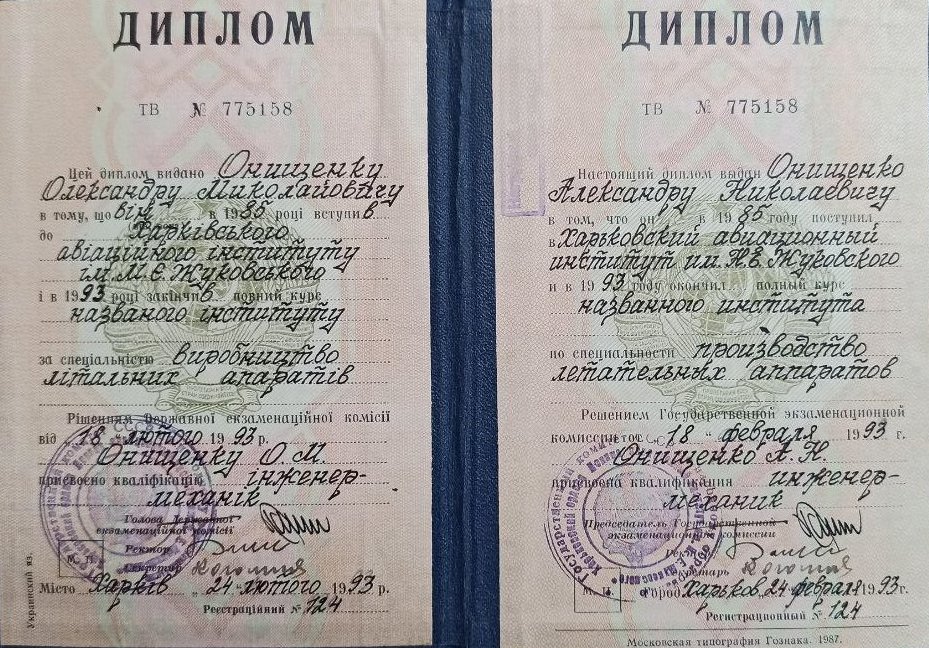 ДИПЛОМ
ТВ № 775158
Цей диплом видано Онищенку
Олександру Миколайовичу
в тому, що він в 1985 році вступив
до Харківського
авіаційного інституту
ім. М.Є. Жуковського
і в 1993 році закінчив повний курс
названого інституту
за спеціальністю виробництво
літальних апаратів
Рішенням Державної екзаменаційної комісії
від 18 " лютого 1993 р.
Онищенку О.М.
присвоєно кваліфікацію інженер-
механік
Голова Державної
екзаменаційної комісії
Ректор
Секретар
М. П.
Місто Харків "24" лютого 1993 р.
Реєстраційний № 124
Украинский яз.
ДИПЛОМ
ТВ № 775158
Настоящий диплом выдан Онищенко
Александру Николаевичу
в том, что он в 1985 году поступил
в Харьковский авиационный
институт им. Н.Е. Жуковского
и в 1993 году окончил полный курс
названного института
по специальности производство
летательных аппаратов
Решением Государственной экзаменационной
комиссии от 18 " февраля 1993 г.
Онищенко А.Н.
присвоена квалификация инженер-
механик
Председатель Государственной
экзаменационной комиссии
Ректор
Секретарь
М. П.
Город Харьков, 24 февраля 1993 г.
Регистрационный № 124
Московская типография Гознака. 1987.